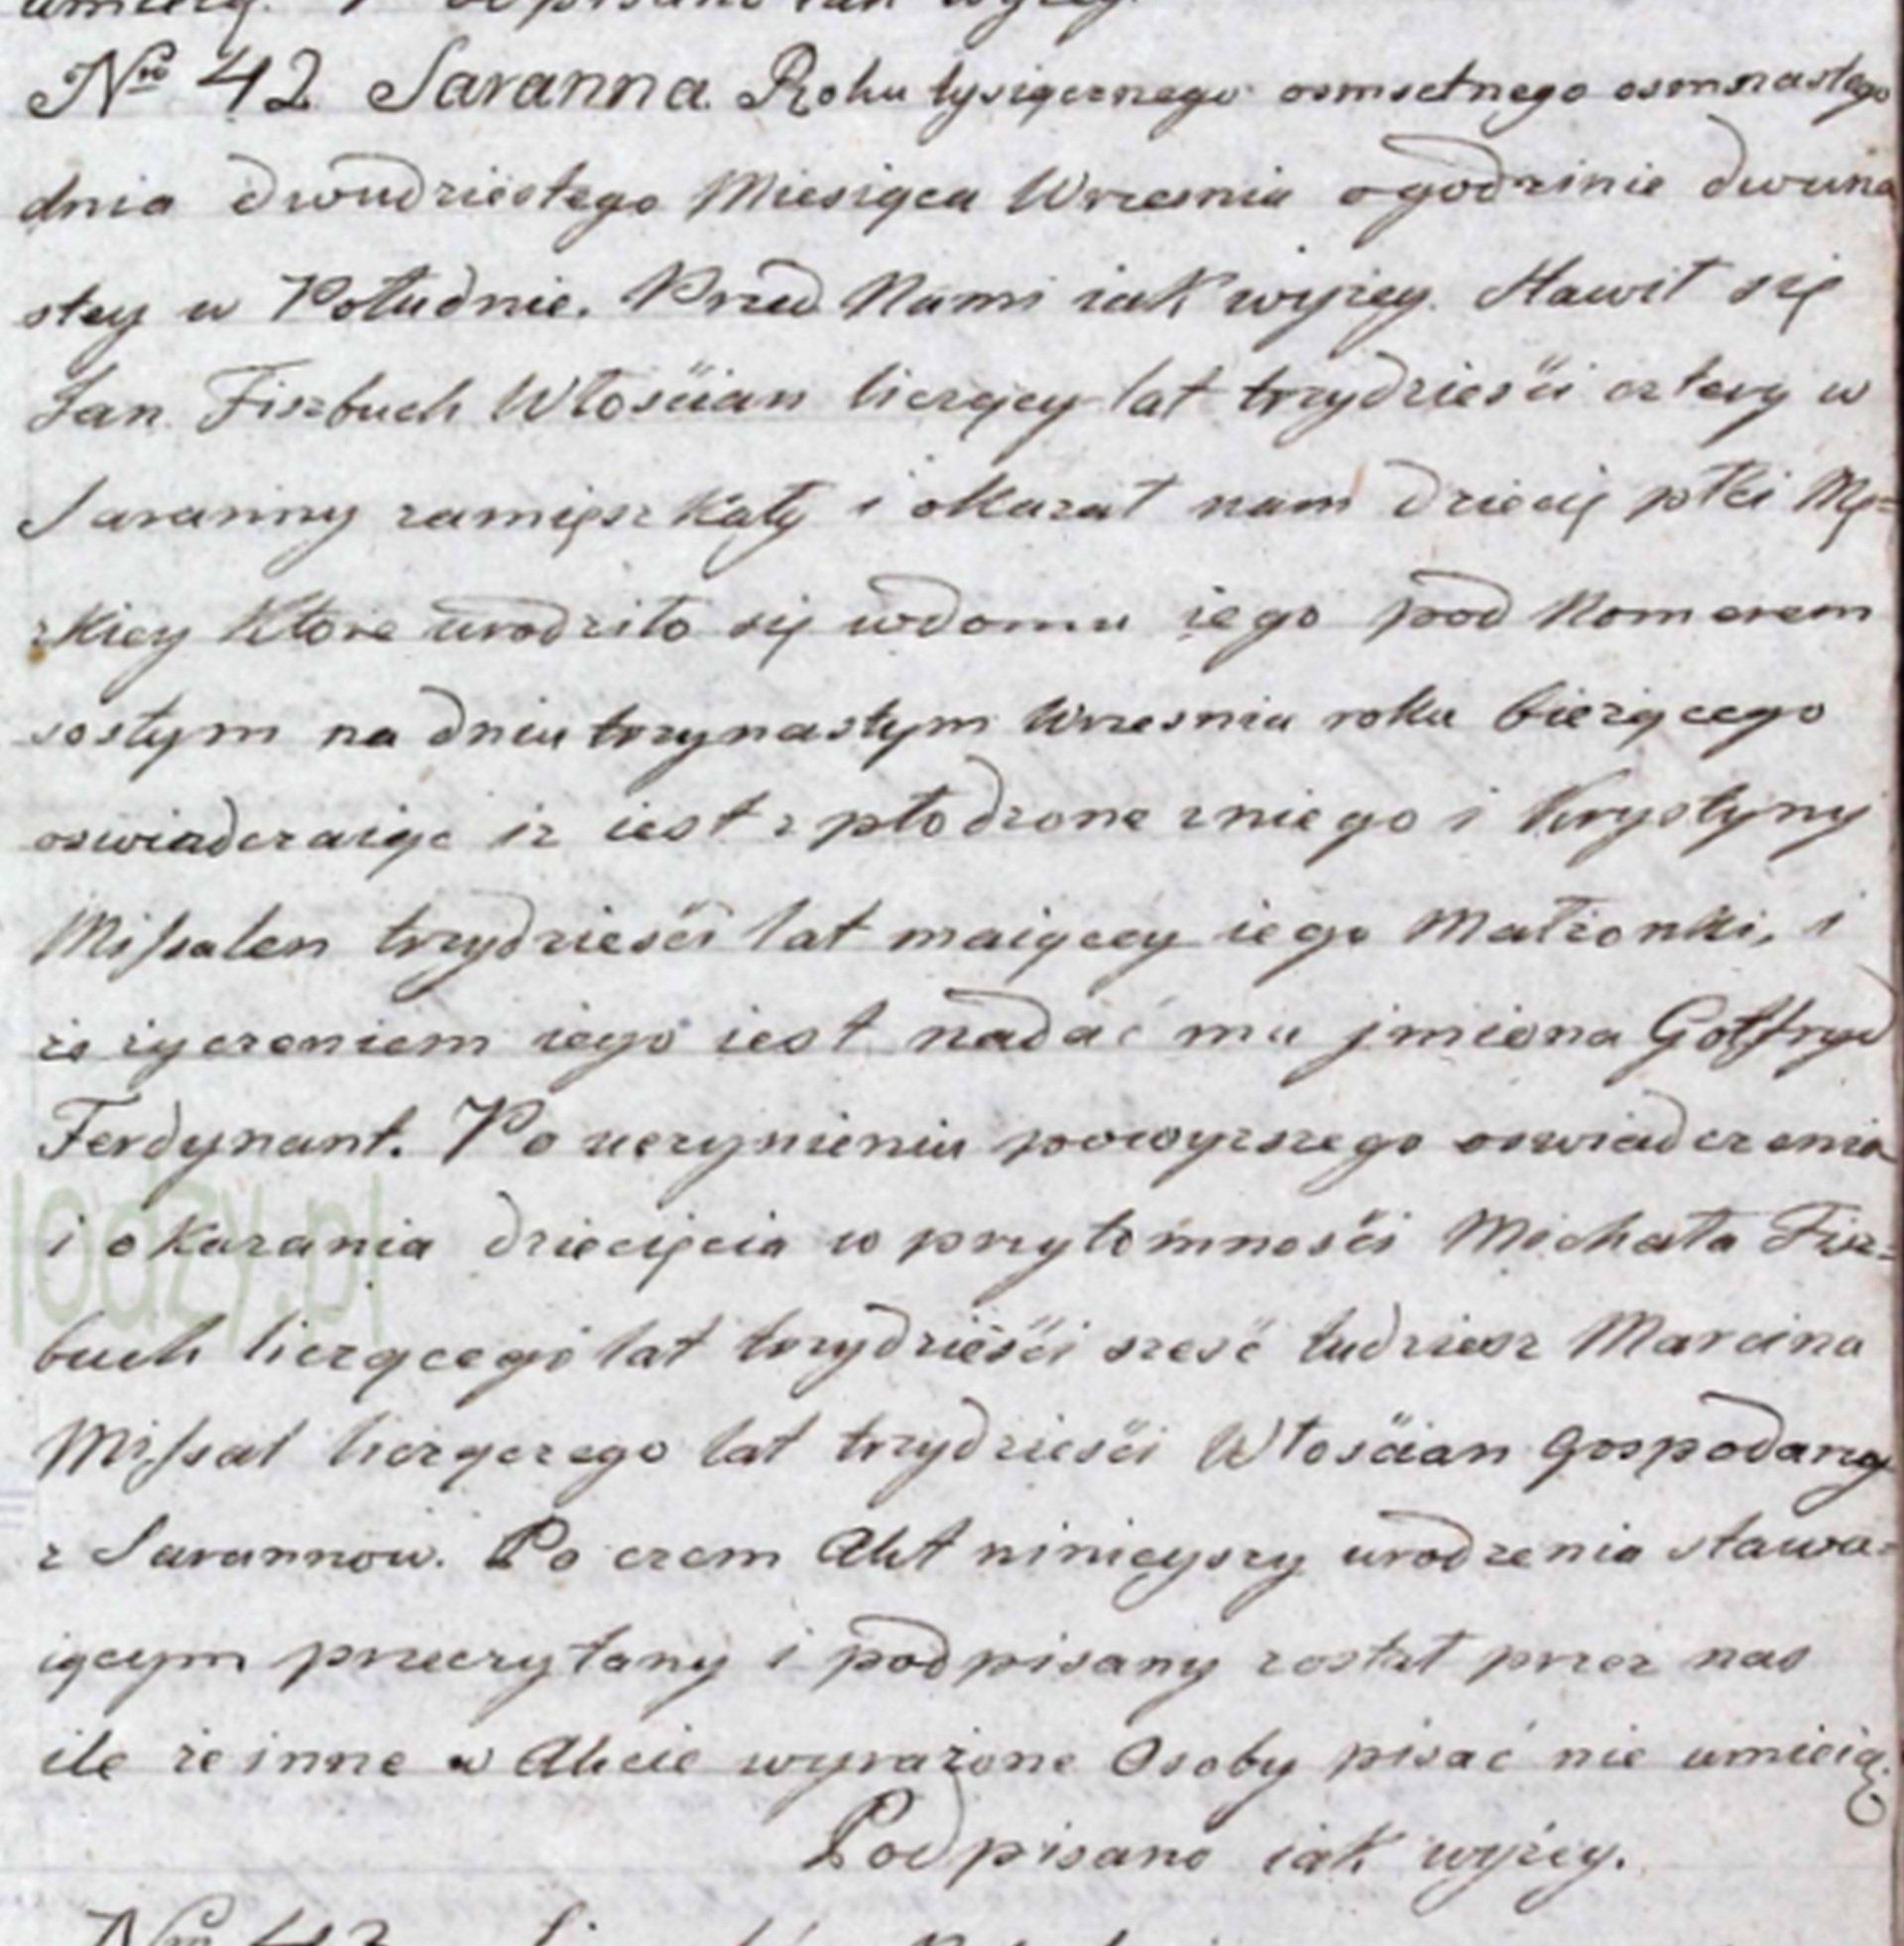 Nro 42 Savanna Roku tysiącznego osmsetnego osmnastego
dnia dwudziestego Miesiąca Wrzesnia o godzinie dwuna
stey w Południe. Przed Nami iak wyżey. Stawił się
Jan Fiszbuch Włościan liczący lat trzydzieści cztery w
Savanny zamięszkały i okazał nam dziecię płci Mę=
zkiey które urodziło się w domu iego pod Nomerem
sostym na dniu trzynastym Wrzesnia roku bieżącego
oswiadczaiąc iż iest spłodzone z niego i Krystyny
Missalen trzydzieści lat maiącey iego Małżonki, i
że życzeniem iego iest nadać mu jmiona Gotfryd
Ferdynant. Po uczynieniu powyższego oswiadczenia
i okazania dziecięcia w przytomności Michała Fisz=
buch liczącego lat trzydzieści szesć tudziesz Marcina
Missal liczączego lat trzydzieści Włościan Gospodarzy
z Savannow. Po czem Akt ninieyszy urodzenia stawa=
iącym przeczytany i podpisany został przez nas
ile że inne w Akcie wyrażone Osoby pisać nie umieią.
Podpisano iak wyżey.
lodzy.pl